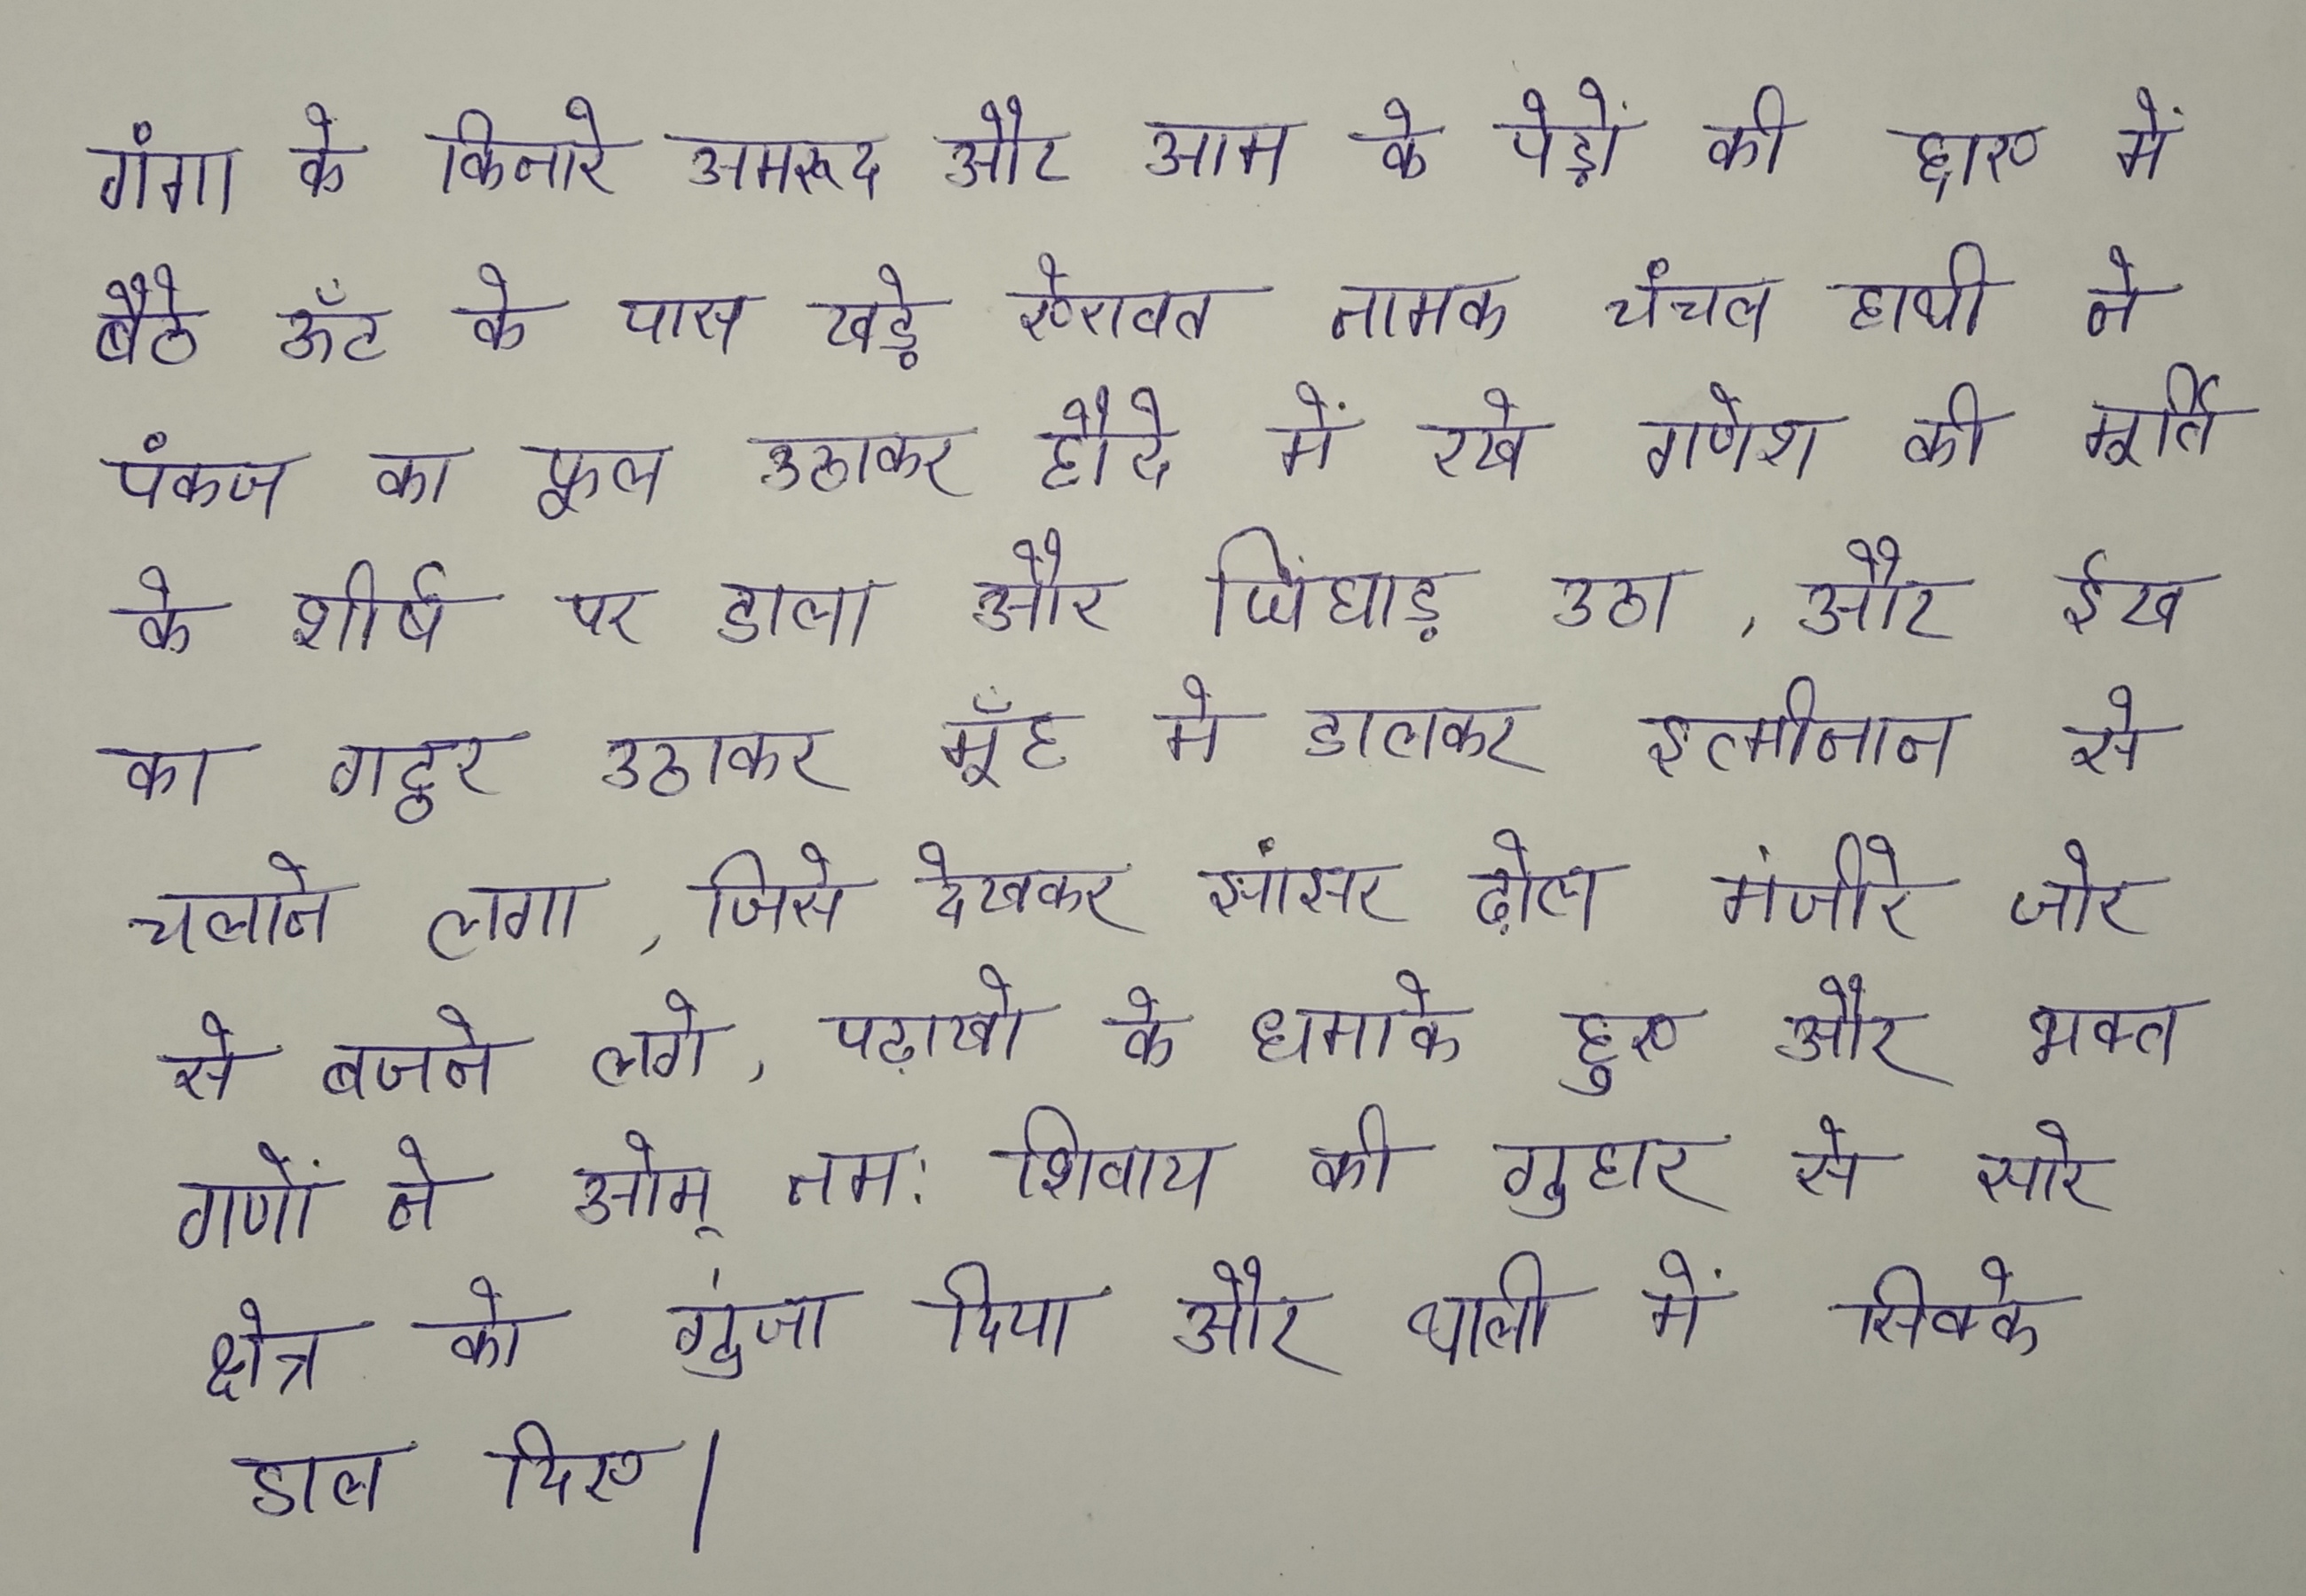 गंगा के किनारे अमरूद और आम के पेड़ों की छाए में
बैठे ऊँट के पास खड़े ऐरावत नामक चंचल हाथी ने
पंकज का फूल उठाकर हौदे में रखे गणेश की मूर्ति
के शीर्ष पर डाला और चिंघाड़ उठा , और ईख
का गट्ठर उठाकर मूँह मे डालकर इत्मीनान से
चलाने लगा , जिसे देखकर झांझर ढ़ोल मंजीरे जोर
से बजने लगे , पटाखो के धमाके हुए और भक्त
गणों ने ओम् नमः शिवाय की गुहार से सारे
क्षेत्र को गुंजा दिया और थाली में सिक्के
डाल दिए।